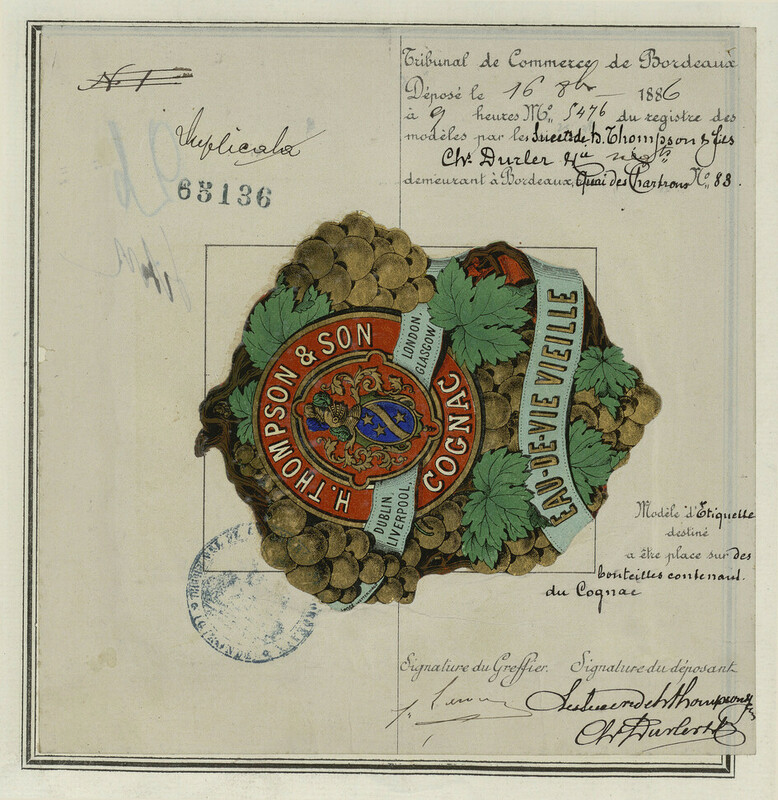 N. 1
Duplicata
65136
Tribunal de Commerce de Bordeaux
Déposé le 16 8bre 1886
à 9 heures No. 5476 du registre des
modèles par les Succrs de H. Thompson & fils
Chs. Durler & Cie négts
demeurant à Bordeaux, Quai des Chartrons No. 88.
H. THOMPSON & SON
COGNAC
LONDON,
GLASGOW
DUBLIN,
LIVERPOOL,
EAU-DE-VIE VIEILLE
Modèle d'Etiquette
destiné
a être place sur des
bouteilles contenant
du Cognac
Signature du Greffier. Signature du déposant
Les Succrs de H. Thompson &
Chs. Durler